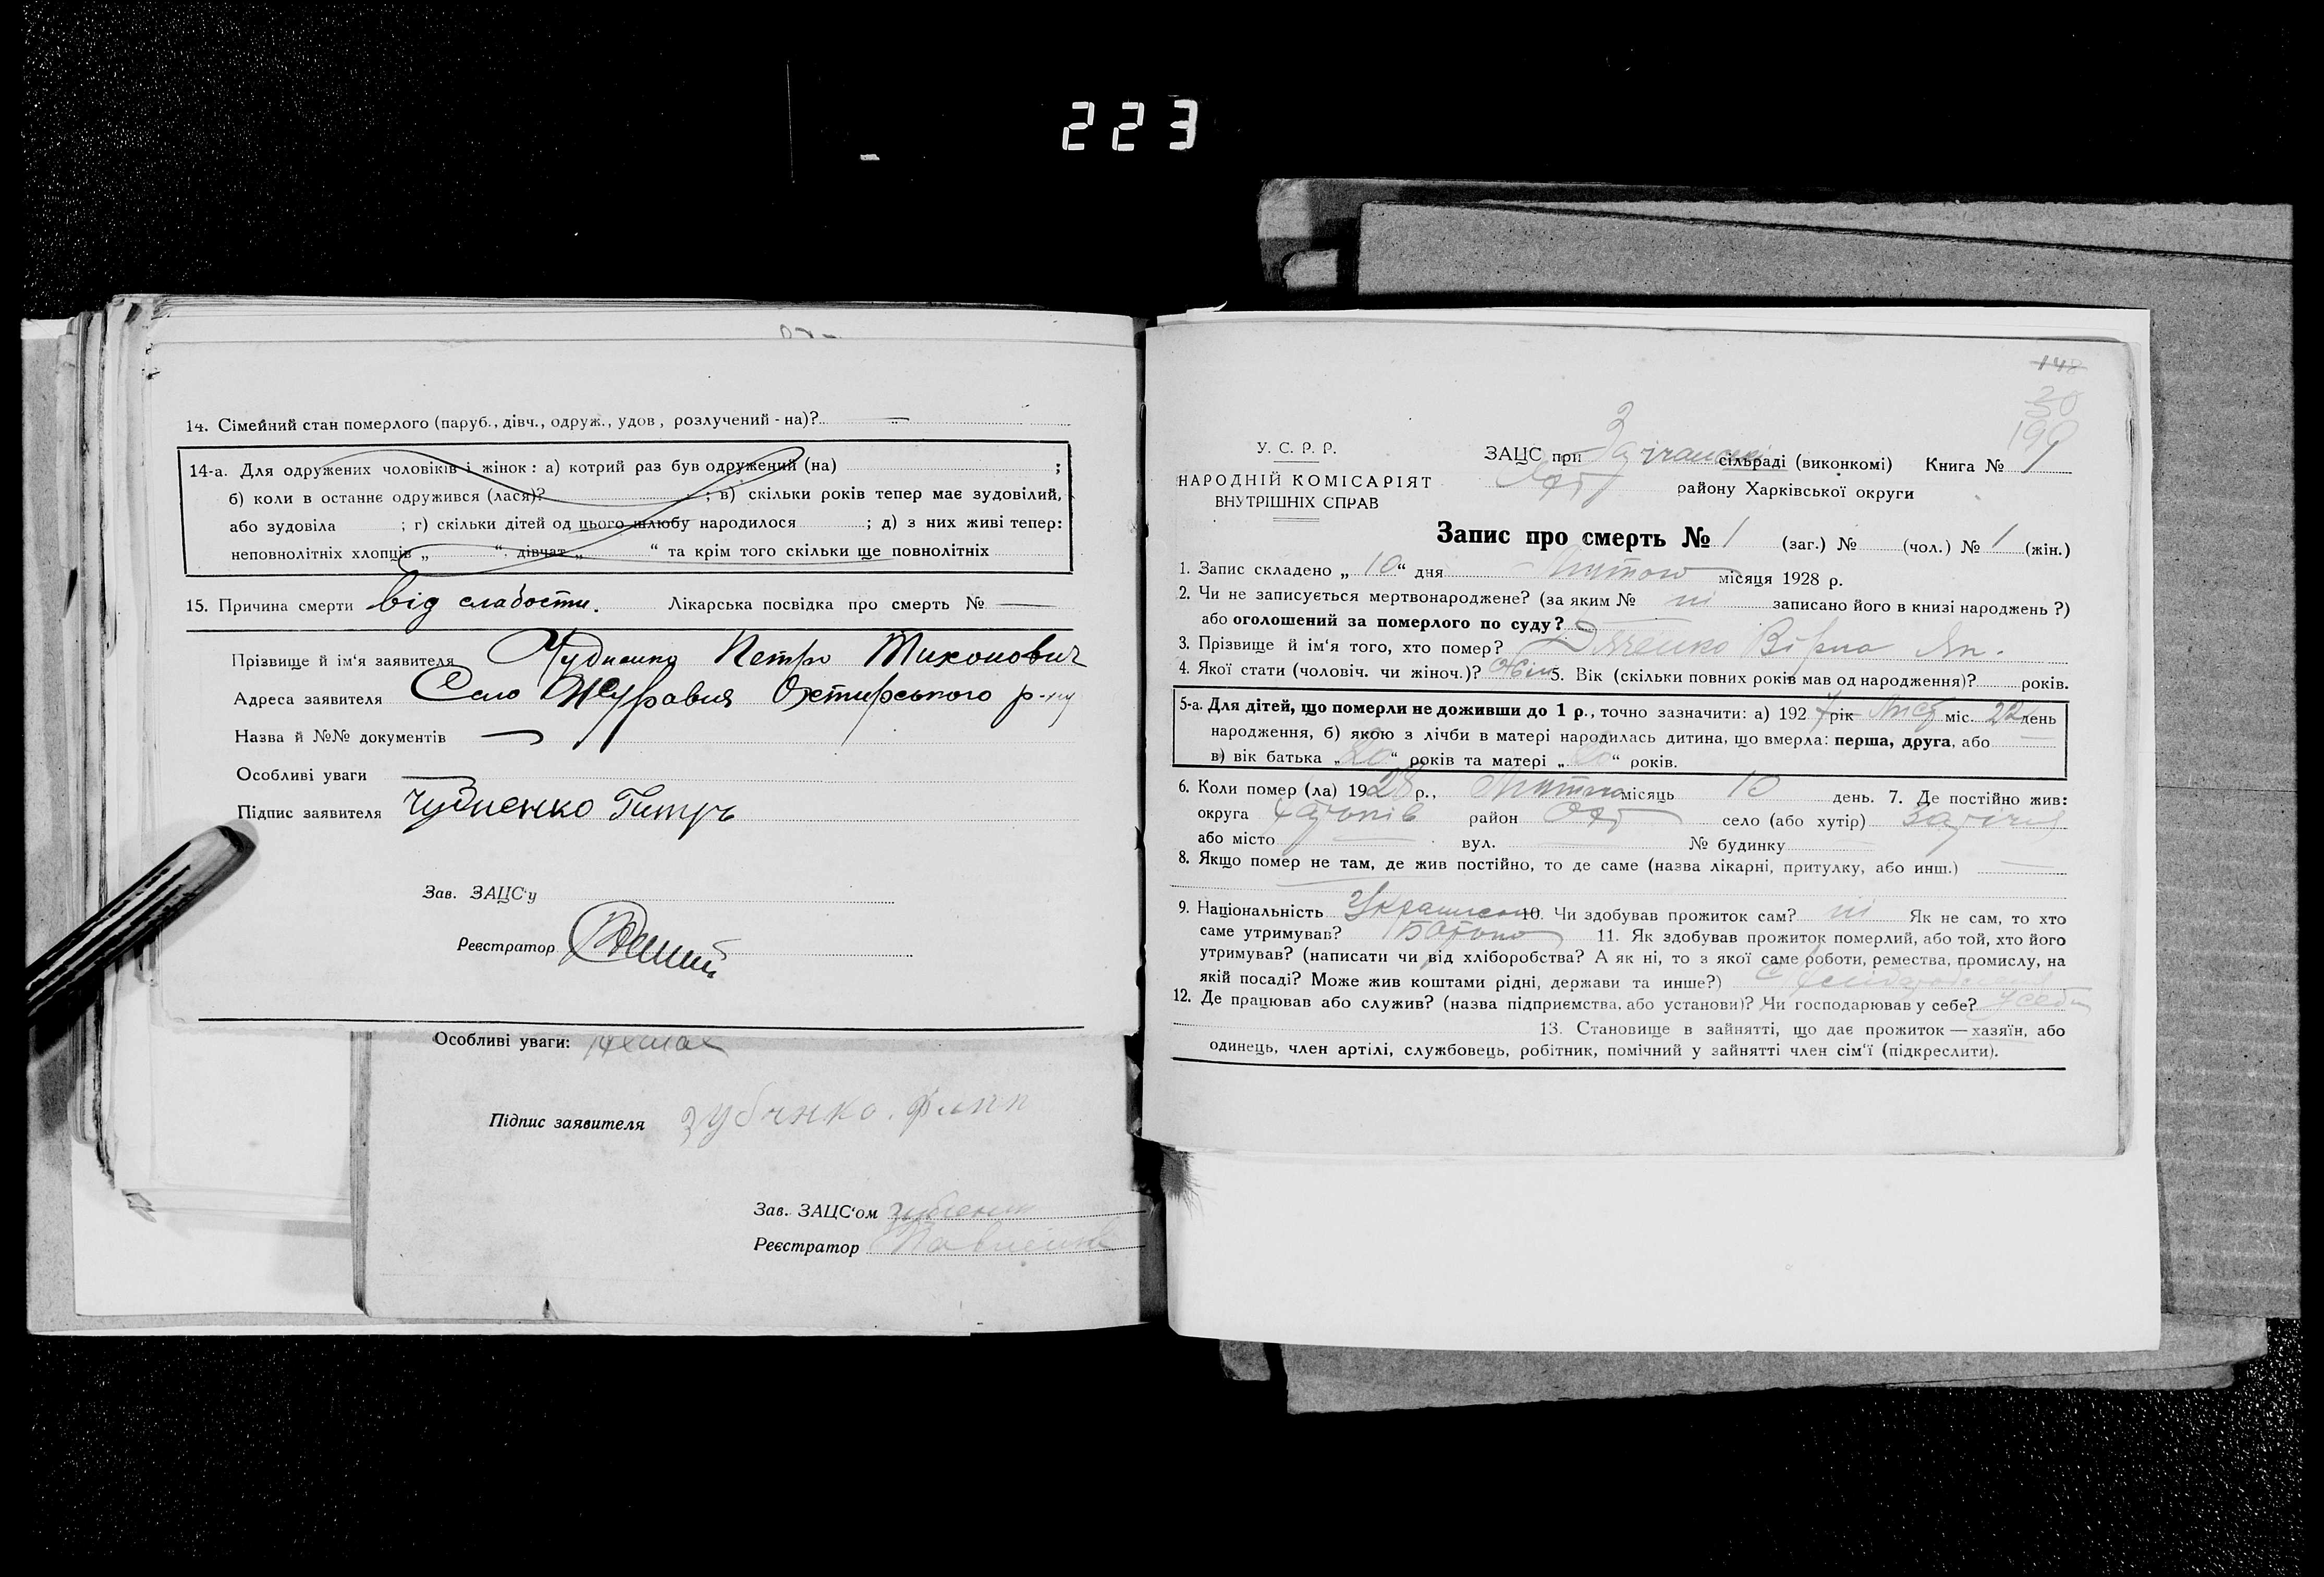 223
14. Сімейний стан померлого (паруб., дівч., одруж., удов, розлучений - на)? —
14-а. Для одружених чоловіків і жінок: а) котрий раз був одружений (на) ;
б) коли в останнє одружився (лася)? ; в) скільки років тепер має зудовілий,
або зудовіла ; г) скільки дітей од цього шлюбу народилося ; д) з них живі тепер:
неповнолітніх хлопців „ “, дівчат „ “ та крім того скільки ще повнолітніх
15. Причина смерти від слабости. Лікарська посвідка про смерть № —
Прізвище й ім'я заявителя Чудненко Петро Тихонович
Адреса заявителя Село Журавня Охтирського р-ну
Назва й №№ документів —
Особливі уваги —
Підпис заявителя Чудненко
Зав. ЗАЦС'у
Реєстратор
Особливі уваги: немає
Підпис заявителя
Зав. ЗАЦС'ом
Реєстратор
148
30
199
У. С. Р. Р.
НАРОДНІЙ КОМІСАРІЯТ
ВНУТРІШНІХ СПРАВ
ЗАЦС при сільраді (виконкомі) Книга № 1
району Харківської округи
Запис про смерть № 1 (заг.) № (чол.) № 1 (жін.)
1. Запис складено „ 10 “ дня Лютого місяця 1928 р.
2. Чи не записується мертвонароджене? (за яким № ні записано його в книзі народжень ?)
або оголошений за померлого по суду?
3. Прізвище й ім'я того, хто помер?
4. Якої стати (чоловіч. чи жіноч.)? Жін 5. Вік (скільки повних років мав од народження)? років.
5-а. Для дітей, що померли не доживши до 1 р., точно зазначити: а) 192 7 рік Лист міс. 22 день
народження, б) якою з лічби в матері народилась дитина, що вмерла: перша, друга, або
в) вік батька „ “ років та матері „ “ років.
6. Коли помер (ла) 1928 р., Лютого місяць 10 день. 7. Де постійно жив:
округа Харьків район село (або хутір)
або місто — вул. — № будинку —
8. Якщо помер не там, де жив постійно, то де саме (назва лікарні, притулку, або инш.) —
9. Національність 10. Чи здобував прожиток сам? ні Як не сам, то хто
саме утримував? 11. Як здобував прожиток померлий, або той, хто його
утримував? (написати чи від хліборобства? А як ні, то з якої саме роботи, ремества, промислу, на
якій посаді? Може жив коштами рідні, держави та инше?)
12. Де працював або служив? (назва підприємства, або установи)? Чи господарював у себе? У себе
13. Становище в зайнятті, що дає прожиток — хазяїн, або
одинець, член артілі, службовець, робітник, помічний у зайнятті член сім'ї (підкреслити).